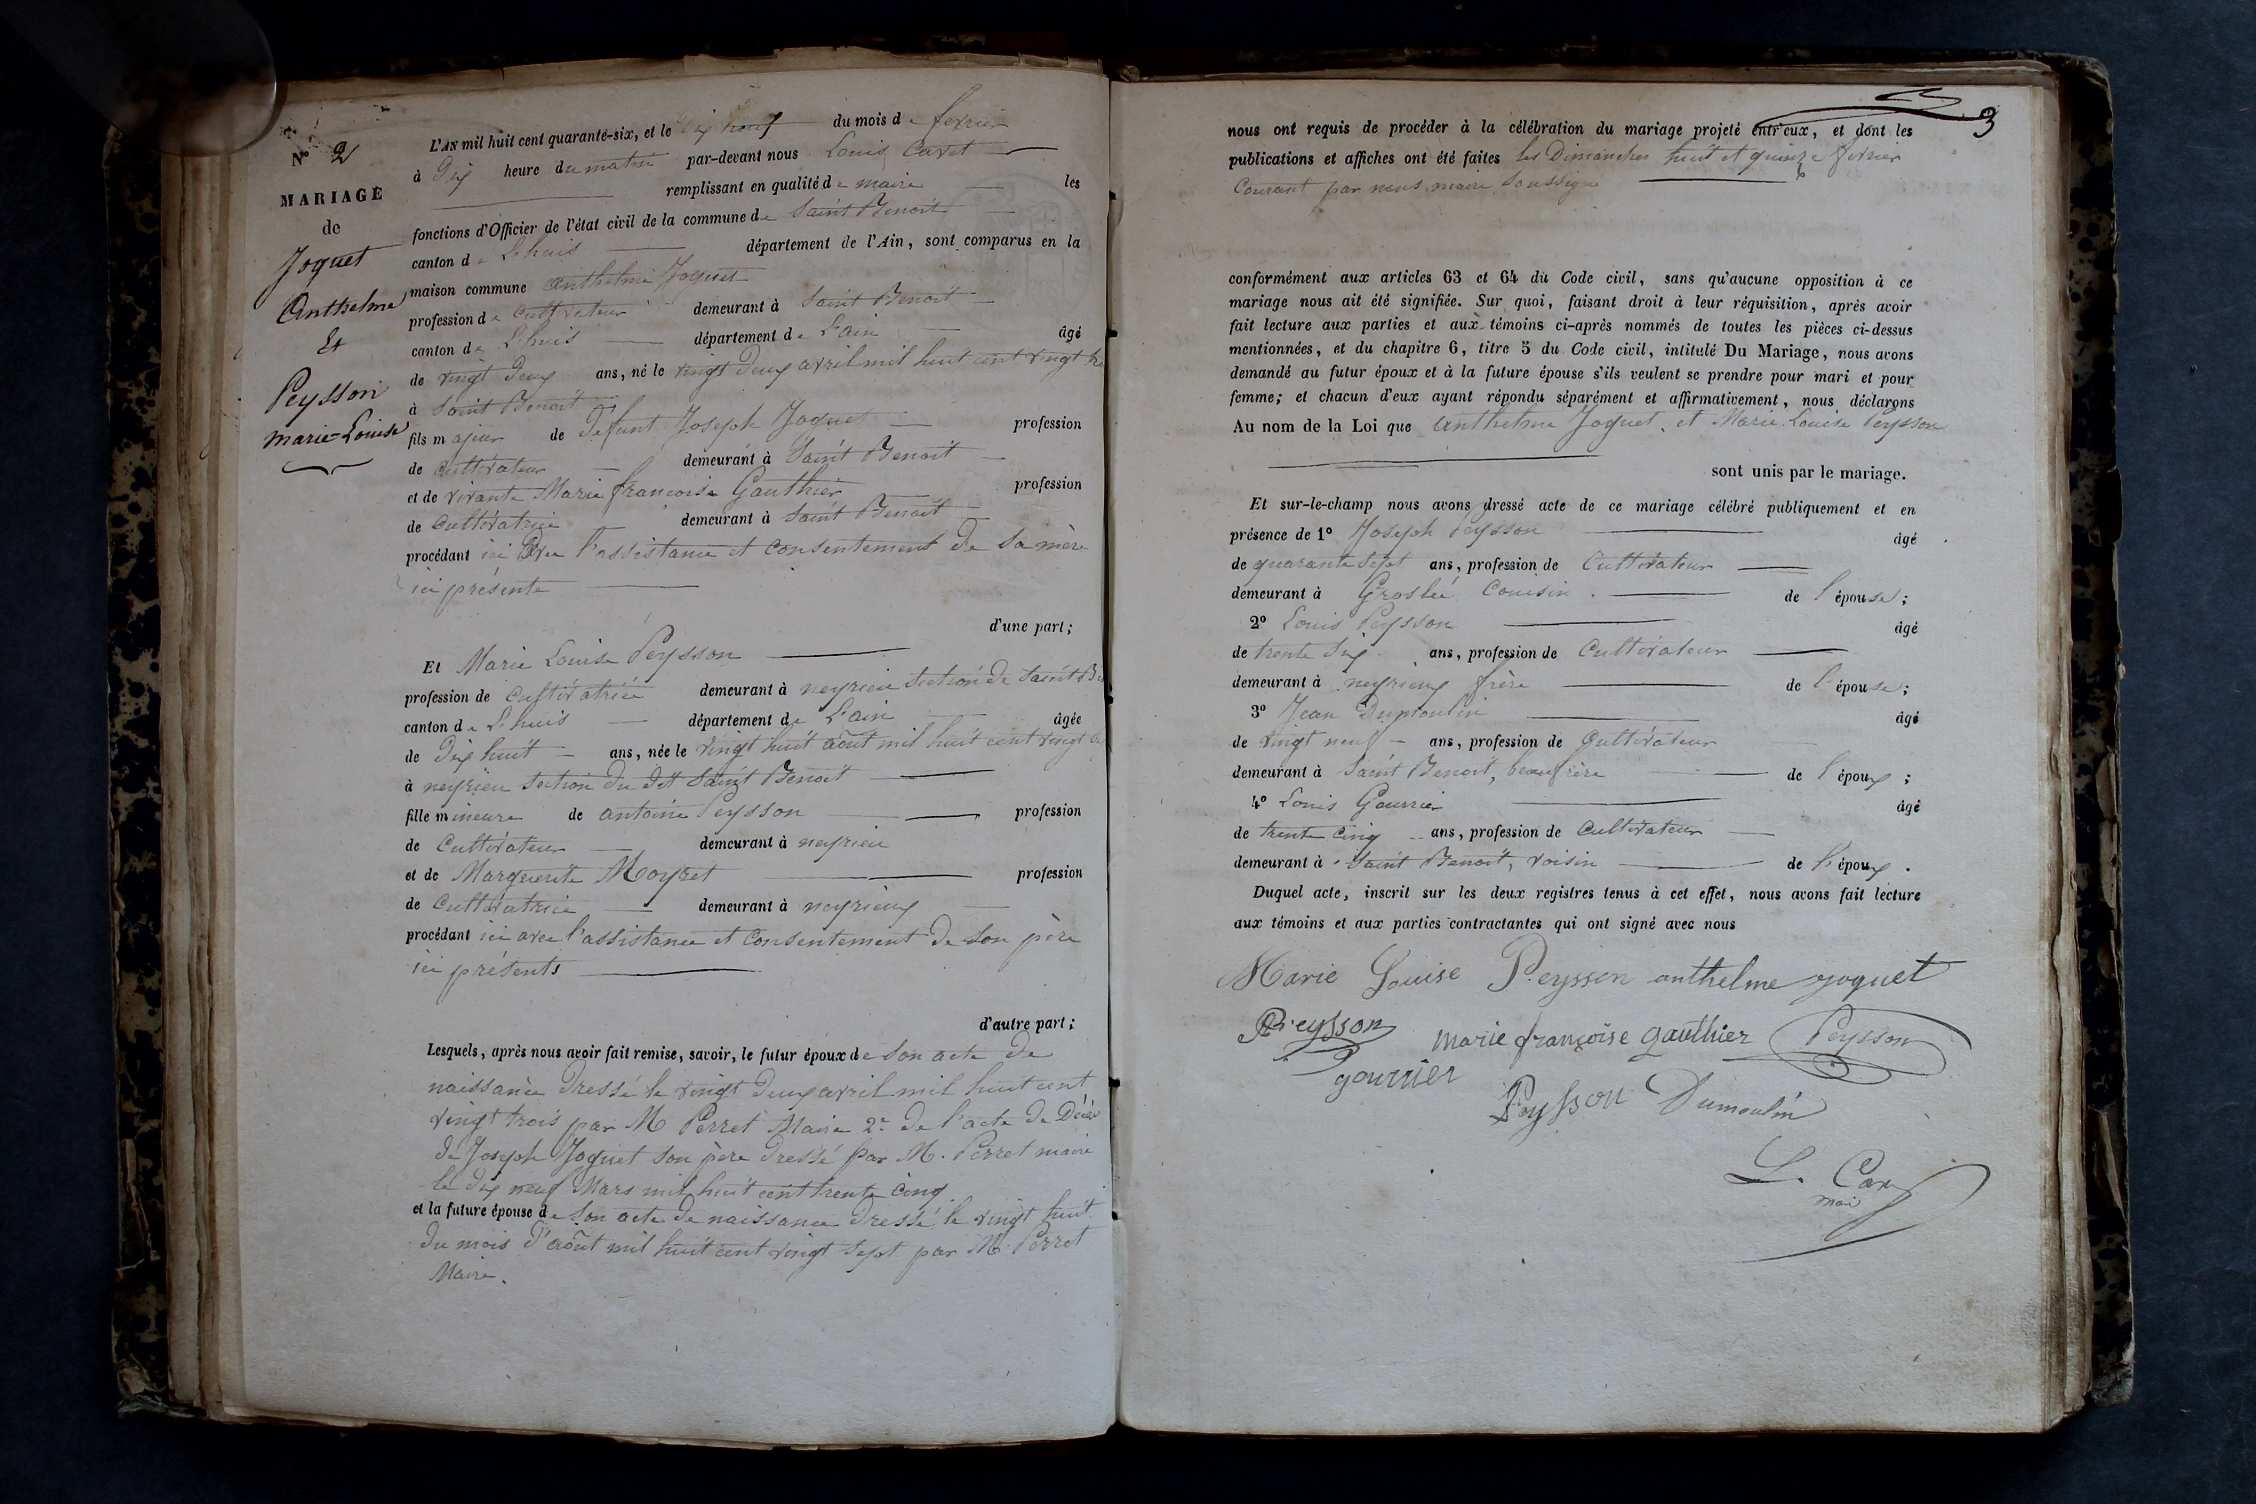 N° 2
MARIAGE
de
Joguet
Anthelme
Et
Peysson
marie=Louise
L'AN mil huit cent quarante-six, et le dix neuf du mois de fevrier
à Dix heure du matin par-devant nous Louis Caret
remplissant en qualité de maire les
fonctions d'Officier de l'état civil de la commune de Saint Benoit
canton de L'huis département de l'Ain, sont comparus en la
maison commune Anthelme Joguet
profession de cultivateur demeurant à Saint Benoit
canton de L'huis département de L'ain âgé
de vingt deux ans, né le vingt deux avril mil huit cent vingt
à Saint Benoit
fils majeur de défunt Joseph Joguet profession
de cultivateur demeurant à Saint Benoit
et de vivante Marie françoise Gauthier profession
de cultivatrice demeurant à Saint Benoit
procédant ici avec l'assistance et consentement de sa mère
ici présente
d'une part;
Et Marie Louise Peysson
profession de cultivatrice demeurant à neyrieu section de Saint
canton de L'huis département de L'ain âgée
de dix huit ans, née le vingt huit août mil huit cent vingt
à neyrieu section du dit Saint Benoit
fille mineure de antoine Peysson profession
de Cultivateur demeurant à neyrieu
et de Marguerite Moyret profession
de Cultivatrice demeurant à neyrieux
procédant ici avec l'assistance et consentement de son père
ici présents
d'autre part;
Lesquels, après nous avoir fait remise, savoir, le futur époux de son acte de
naissance dressé le vingt deux avril mil huit cent
vingt trois par M Perret Maire 2° de l'acte de Décès
de Joseph Joguet son père dressé par M. Perret maire
le dix neuf Mars mil huit cent trente cinq
et la future épouse de son acte de naissance dressé le vingt huit
du mois d'août mil huit cent vingt sept par M. Perret
Maire.
3
nous ont requis de procéder à la célébration du mariage projeté entr'eux, et dont les
publications et affiches ont été faites les Dimanches huit et quinze fevrier
Courant par nous maire soussigné
conformément aux articles 63 et 64 du Code civil, sans qu'aucune opposition à ce
mariage nous ait été signifiée. Sur quoi, faisant droit à leur réquisition, après avoir
fait lecture aux parties et aux témoins ci-après nommés de toutes les pièces ci-dessus
mentionnées, et du chapitre 6, titre 5 du Code civil, intitulé Du Mariage, nous avons
demandé au futur époux et à la future épouse s'ils veulent se prendre pour mari et pour
femme; et chacun d'eux ayant répondu séparément et affirmativement, nous déclarons
Au nom de la Loi que Anthelme Joguet, et Marie Louise Peysson
sont unis par le mariage.
Et sur-le-champ nous avons dressé acte de ce mariage célébré publiquement et en
présence de 1° Joseph Peysson âgé
de quarante sept ans, profession de Cultivateur
demeurant à Groslée Cousin de l'épouse;
2° Louis Peysson âgé
de trente six ans, profession de Cultivateur
demeurant à neyrieux frère de l'épouse;
3° Jean Dumoulin âgé
de vingt neuf ans, profession de Cultivateur
demeurant à Saint Benoit, beaufrère de l'époux;
4° Louis Gourrier âgé
de trente cinq ans, profession de Cultivateur
demeurant à Saint Benoit, voisin de l'époux.
Duquel acte, inscrit sur les deux registres tenus à cet effet, nous avons fait lecture
aux témoins et aux parties contractantes qui ont signé avec nous
Marie Louise Peysson anthelme joguet
Peysson marie françoise gauthier Peysson
gourrier Peysson Dumoulin
L. Caret